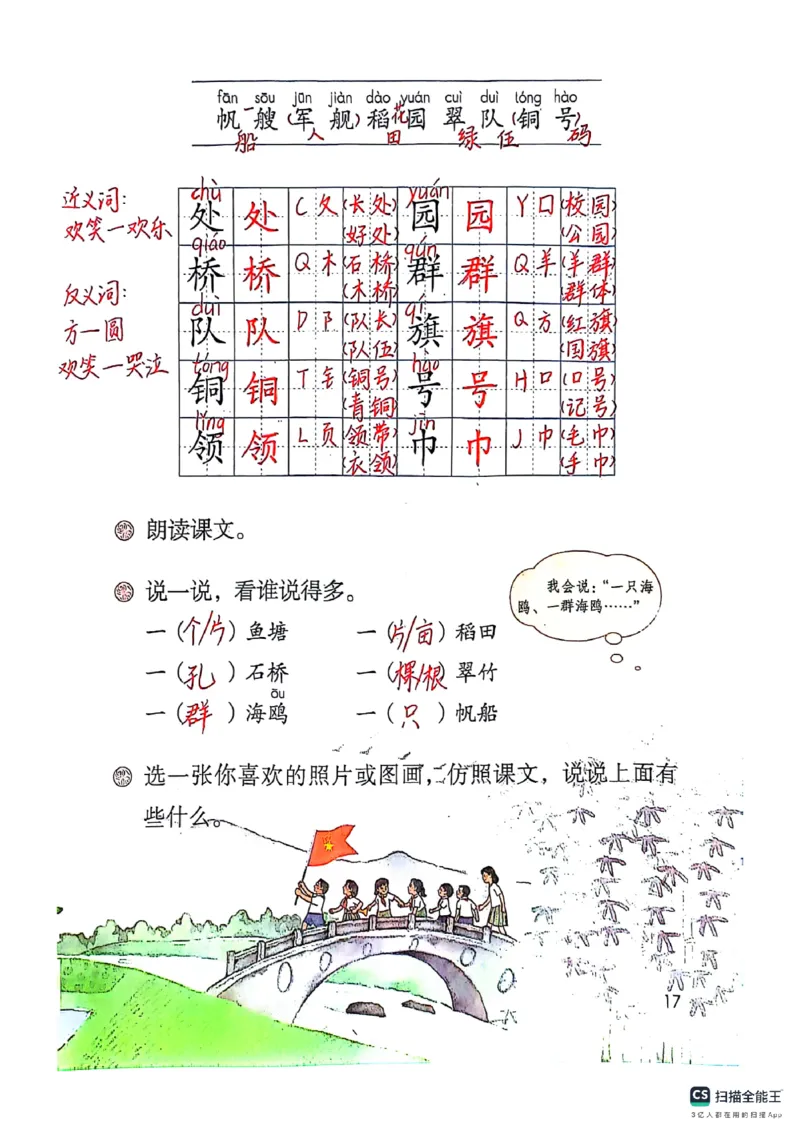 fān sōu jūn jiàn dào yuán cuì duì tóng hào
帆 一艘 (军 舰) 稻花园 翠 队 (铜 号)
船 人 田 绿 伍 码
chù yuán
近义词: 处 处 C 夂 (长处) 园 园 Y 口 (校园)
欢笑一欢乐 (好处) (公园)
qiáo qún
桥 桥 Q 木 (石桥) 群 群 Q 羊 (羊群)
反义词: (木桥) (群体)
duì qí
方一圆 队 队 D 阝 (队长) 旗 旗 Q 方 (红旗)
(队伍) (国旗)
欢笑一哭泣 tóng hào
铜 铜 T 钅 (铜号) 号 号 H 口 (口号)
(青铜) (记号)
lǐng jīn
领 领 L 页 (领带) 巾 巾 J 巾 (毛巾)
(衣领) (手巾)
朗读课文。
说一说，看谁说得多。
我会说：“一只海
鸥、一群海鸥……”
一(个/片)鱼塘 一(片/亩)稻田
一(孔)石桥 一(棵/根)翠竹
ōu
一(群)海鸥 一(只)帆船
选一张你喜欢的照片或图画，仿照课文，说说上面有
些什么。
17
CS 扫描全能王
3亿人都在用的扫描App